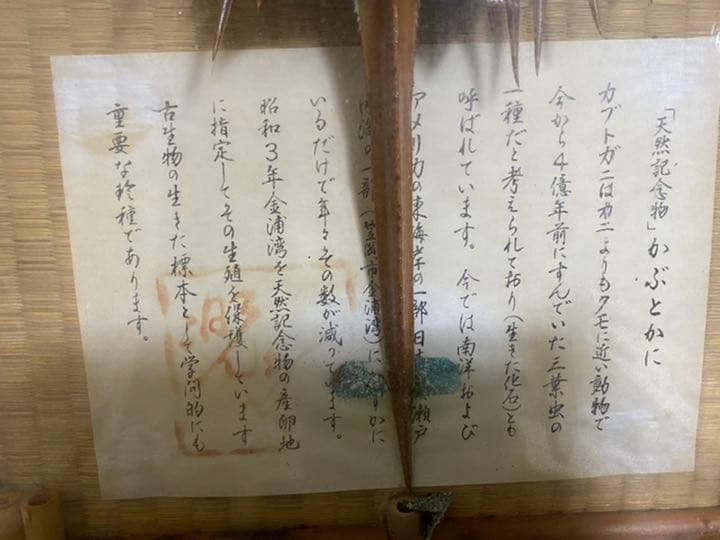 「天然記念物」かぶとかに
カブトガニはカニよりもクモに近い動物で
今から4億年前にすんでいた三葉虫の
一種だと考えられており(生きた化石)とも
呼ばれています。今では南洋および
アメリカの東海岸の一部日 瀬戸
内海の一部(笠岡市金浦湾)に ずかに
いるだけで年々その数が減っています。
昭和3年金浦湾を天然記念物の産卵地
に指定してその生殖を保護しています
古生物の生きた標本として学問的にも
重要な珍種であります。